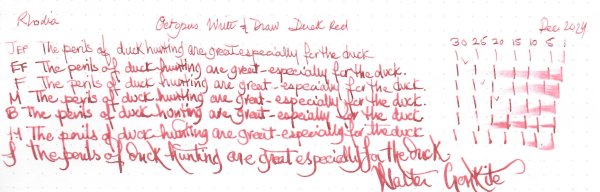 Rhodia Octopus Write & Draw Duck Red Dec 2024
30 25 20 15 10 5 1
JEF The perils of duck hunting are great especially for the duck
EF The perils of duck hunting are great - especially for the duck.
F The perils of duck hunting are great - especially for the duck.
M The perils of duck hunting are great - especially for the duck.
B The perils of duck hunting are great - especially for the duck
M The perils of duck hunting are great - especially for the duck
f The perils of duck-hunting are great especially for the duck
Walter